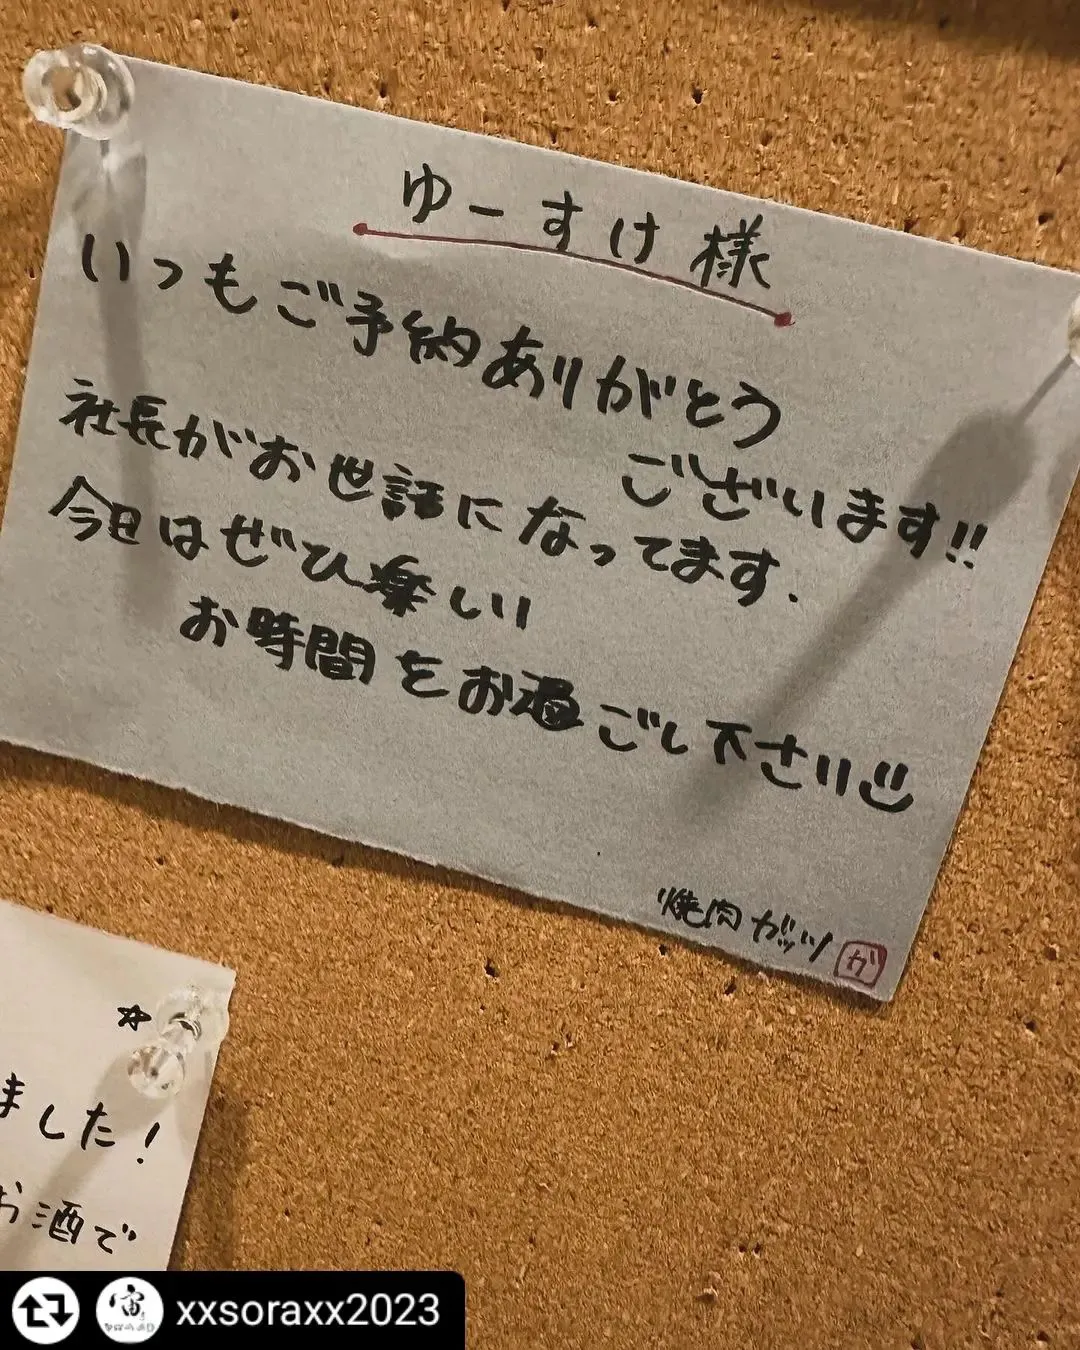 ゆーすけ様
いつもご予約ありがとう
ございます!!
社長がお世話になってます.
今日はぜひ楽しい
お時間をお過ごし下さい
焼肉ガッツ
が
☆
ました!
お酒で
xxsoraxx2023